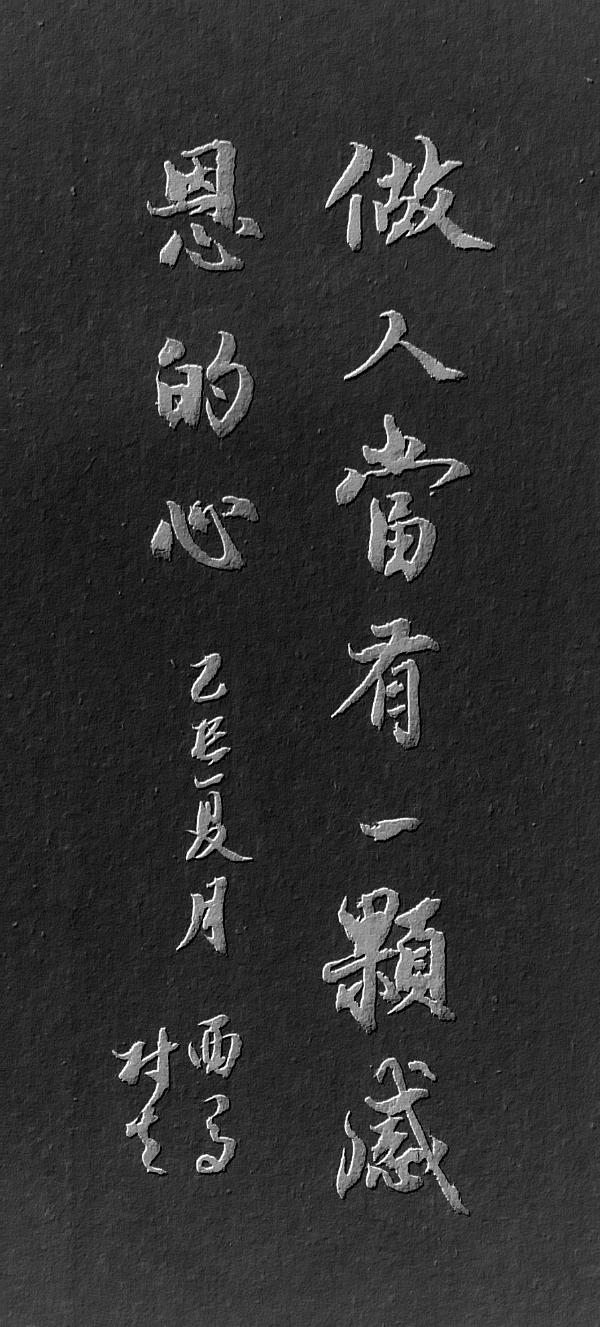 做人當有一顆感
恩的心
乙巳夏月
西马
村夫